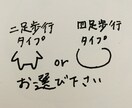 二足歩行 四足歩行
タイプ タイプ
or
お選び下さい